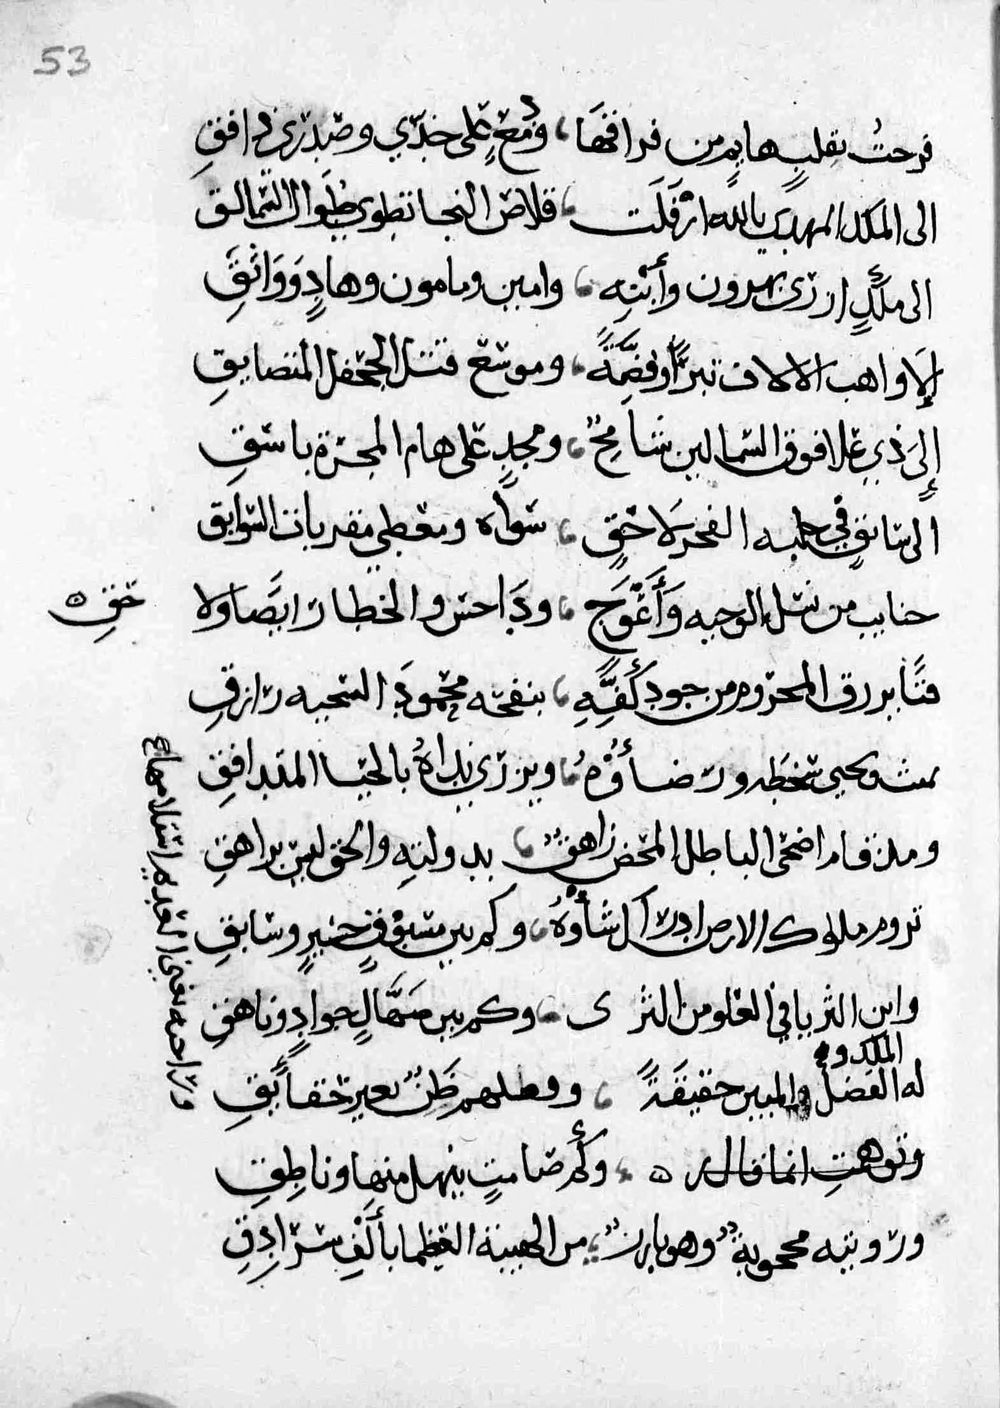 53
فرحتُ بقلبٍ هايمٍ من فراقها ، ودمعٍ على خدّي وصدري دافقِ
الى الملك المهدي بالله ارقلت ، قلاص النجا تطوي طوال الشمالق
الى ملكٍ ازرى بهرون وأبنِه ، وامين ومامون وهادٍ وَوَاثقِ
إلى واهب الالاف تبرًا وفضّةً ، وموسع قتل الجحفل المتضايق
إلى ذي علا فوق السماكين شامخٌ ، ومجدٍ على هام المجرّة باسقِ
الى سابقٍ في حلبه الفخر لاحقٍ ، سواه ومعطي مقربات السوابق
جنايب من نسل الوجيه وَأَعْوَجٍ ، ودَاحس والخطار ايضًا ولا حقِ ه
فتًا يرزق المحروم من جود كفِّهِ ، بنفحة محمود السجيه رازقِ
يميت ويحيي سخطه ورضاؤُهُ ، ويزري نداهُ بالحيا المتدافقِ
ومذ قام اضحى الباطل المحض زاهقٌ ، بدولتِهِ والحق ليس بزاهقِ
تروم ملوك الارض ادراك شأوهُ ، وكم بين مسبوقٍ حسيرٍ وسابقِ
واين الثريا في العلو من الثرى ، وكم بين صهّالٍ جوادٍ وناهقِ
الملك و
له الفضل والمبين حقيقةً ، وفضلهم ظنٌ بغير حقائقِ
وتوهت انما قال ه ، وكم صامتٍ ينهل منها وناطِقِ
ورويته محجوبةٌ وهو بارزٌ ، من الهيبة العظما بألفِ سُرَادِقِ